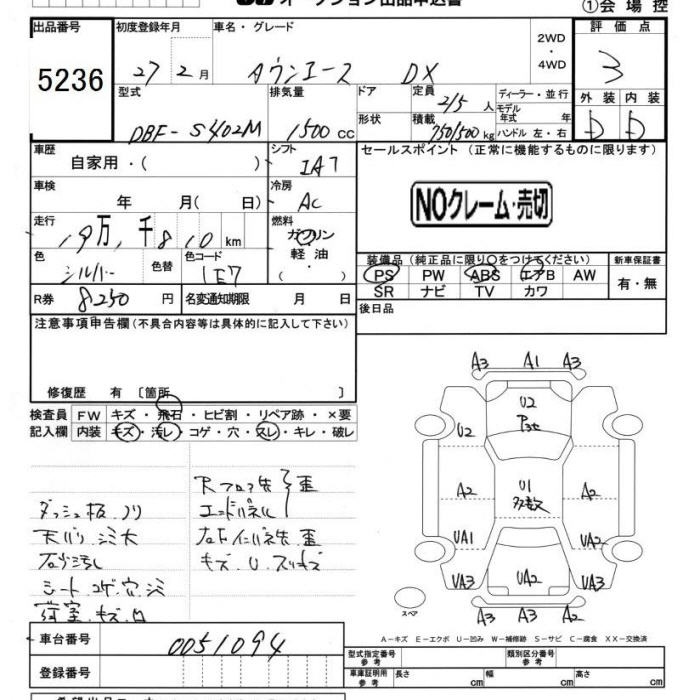 オークション出品申込書
①会場控
出品番号 初度登録年月 車名・グレード 2WD・4WD 評価点
5236 27 2月 タウンエース DX 3
型式 排気量 ドア 定員 2/5人 ディーラー・並行 外装 内装
DBF-S402M 1500cc 形状 積載 750/500kg モデル年式 年 ハンドル 左・右 D D
車歴 シフト セールスポイント(正常に機能するものに限ります)
自家用・( ) IA7
車検 冷房
年 月( 日) AC
NOクレーム・売切
走行 燃料
19万,千810km ガソリン
軽油
・( )
色 色替 色コード 装備品(純正品に限り○をつけてください) 新車保証書
シルバー 1E7 PS PW ABS エアB AW 有・無
SR ナビ TV カワ
R券 8250円 名変通知期限 月 日 後日品
注意事項申告欄(不具合内容等は具体的に記入して下さい)
修復歴 有 〔箇所 〕
検査員 FW キズ・飛石・ヒビ割・リペア跡・×要
記入欄 内装 キズ・汚レ・コゲ・穴・スレ・キレ・破レ
Rフロア先 歪
エンドパネル
ダッシュ板ノリ
天バリ シミ大
キズ U
シート コゲ 穴 シミ
荷室 キズ 凹
A3 A1 A3
U2
U2
A2 U1 A2
多数
UA1 UA2
UA3 UA2 UA3
スペア
A3 A3 A3
A-キズ E-エクボ U-凹み W-補修跡 S-サビ C-腐食 XX-交換済
車台番号 0051094
型式指定番号 参考 類別区分番号 参考
登録番号
車庫証明用 参考 長さ cm 幅 cm 高さ cm